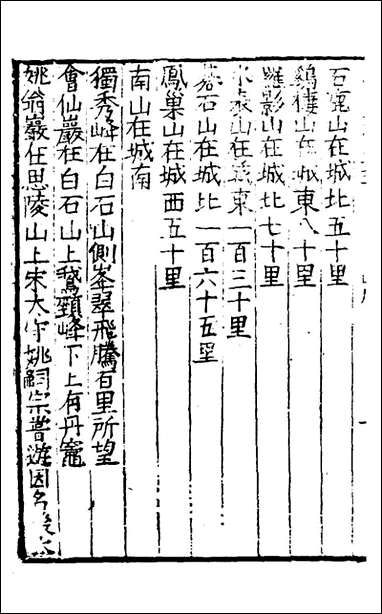 石鹿山在城北五十里
鷄棲山在城東八十里
雞影山在城北七十里
山在城東一百三十里
石山在城北一百六十五里
鳳巢山在城西五十里
南山在城南
獨秀峰在白石山側峯翠飛騰百里所望
會仙巖在白石山上鵝頸峰下上有丹竈
姚翁巖在思陵山上宋太守姚嗣宗普遊因名